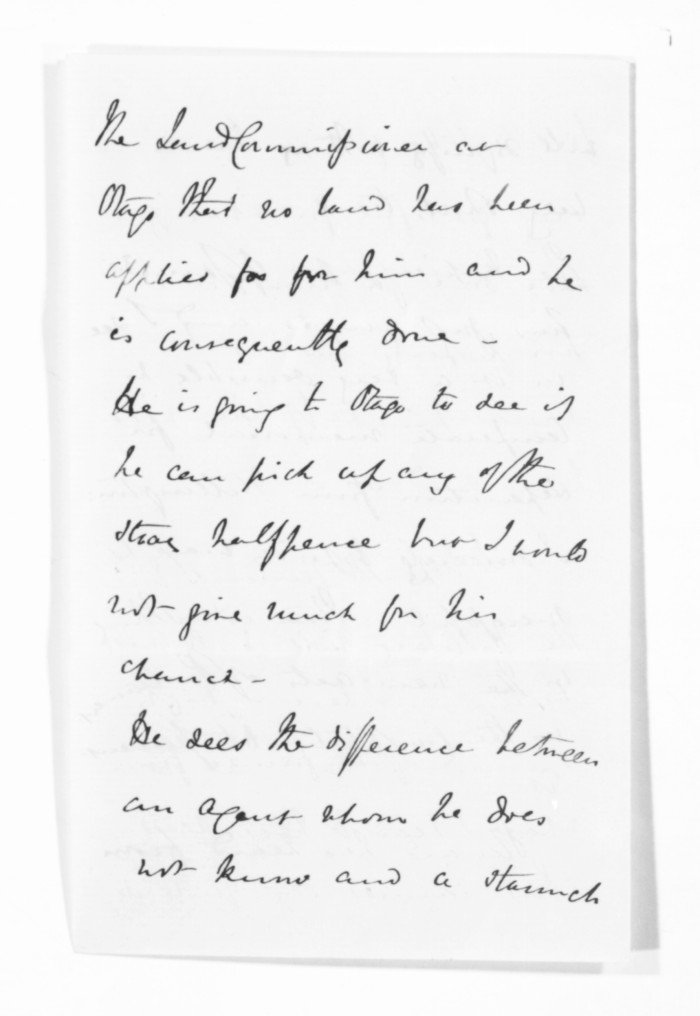 the Land Commissioner at
Otago that no land has been
applied for for him and he
is consequently done -
He is going to Otago to see if
he can pick up any of the
stray halfpence but I would
not give much for his
chance -
He sees the difference between
an agent whom he does
not know and a staunch